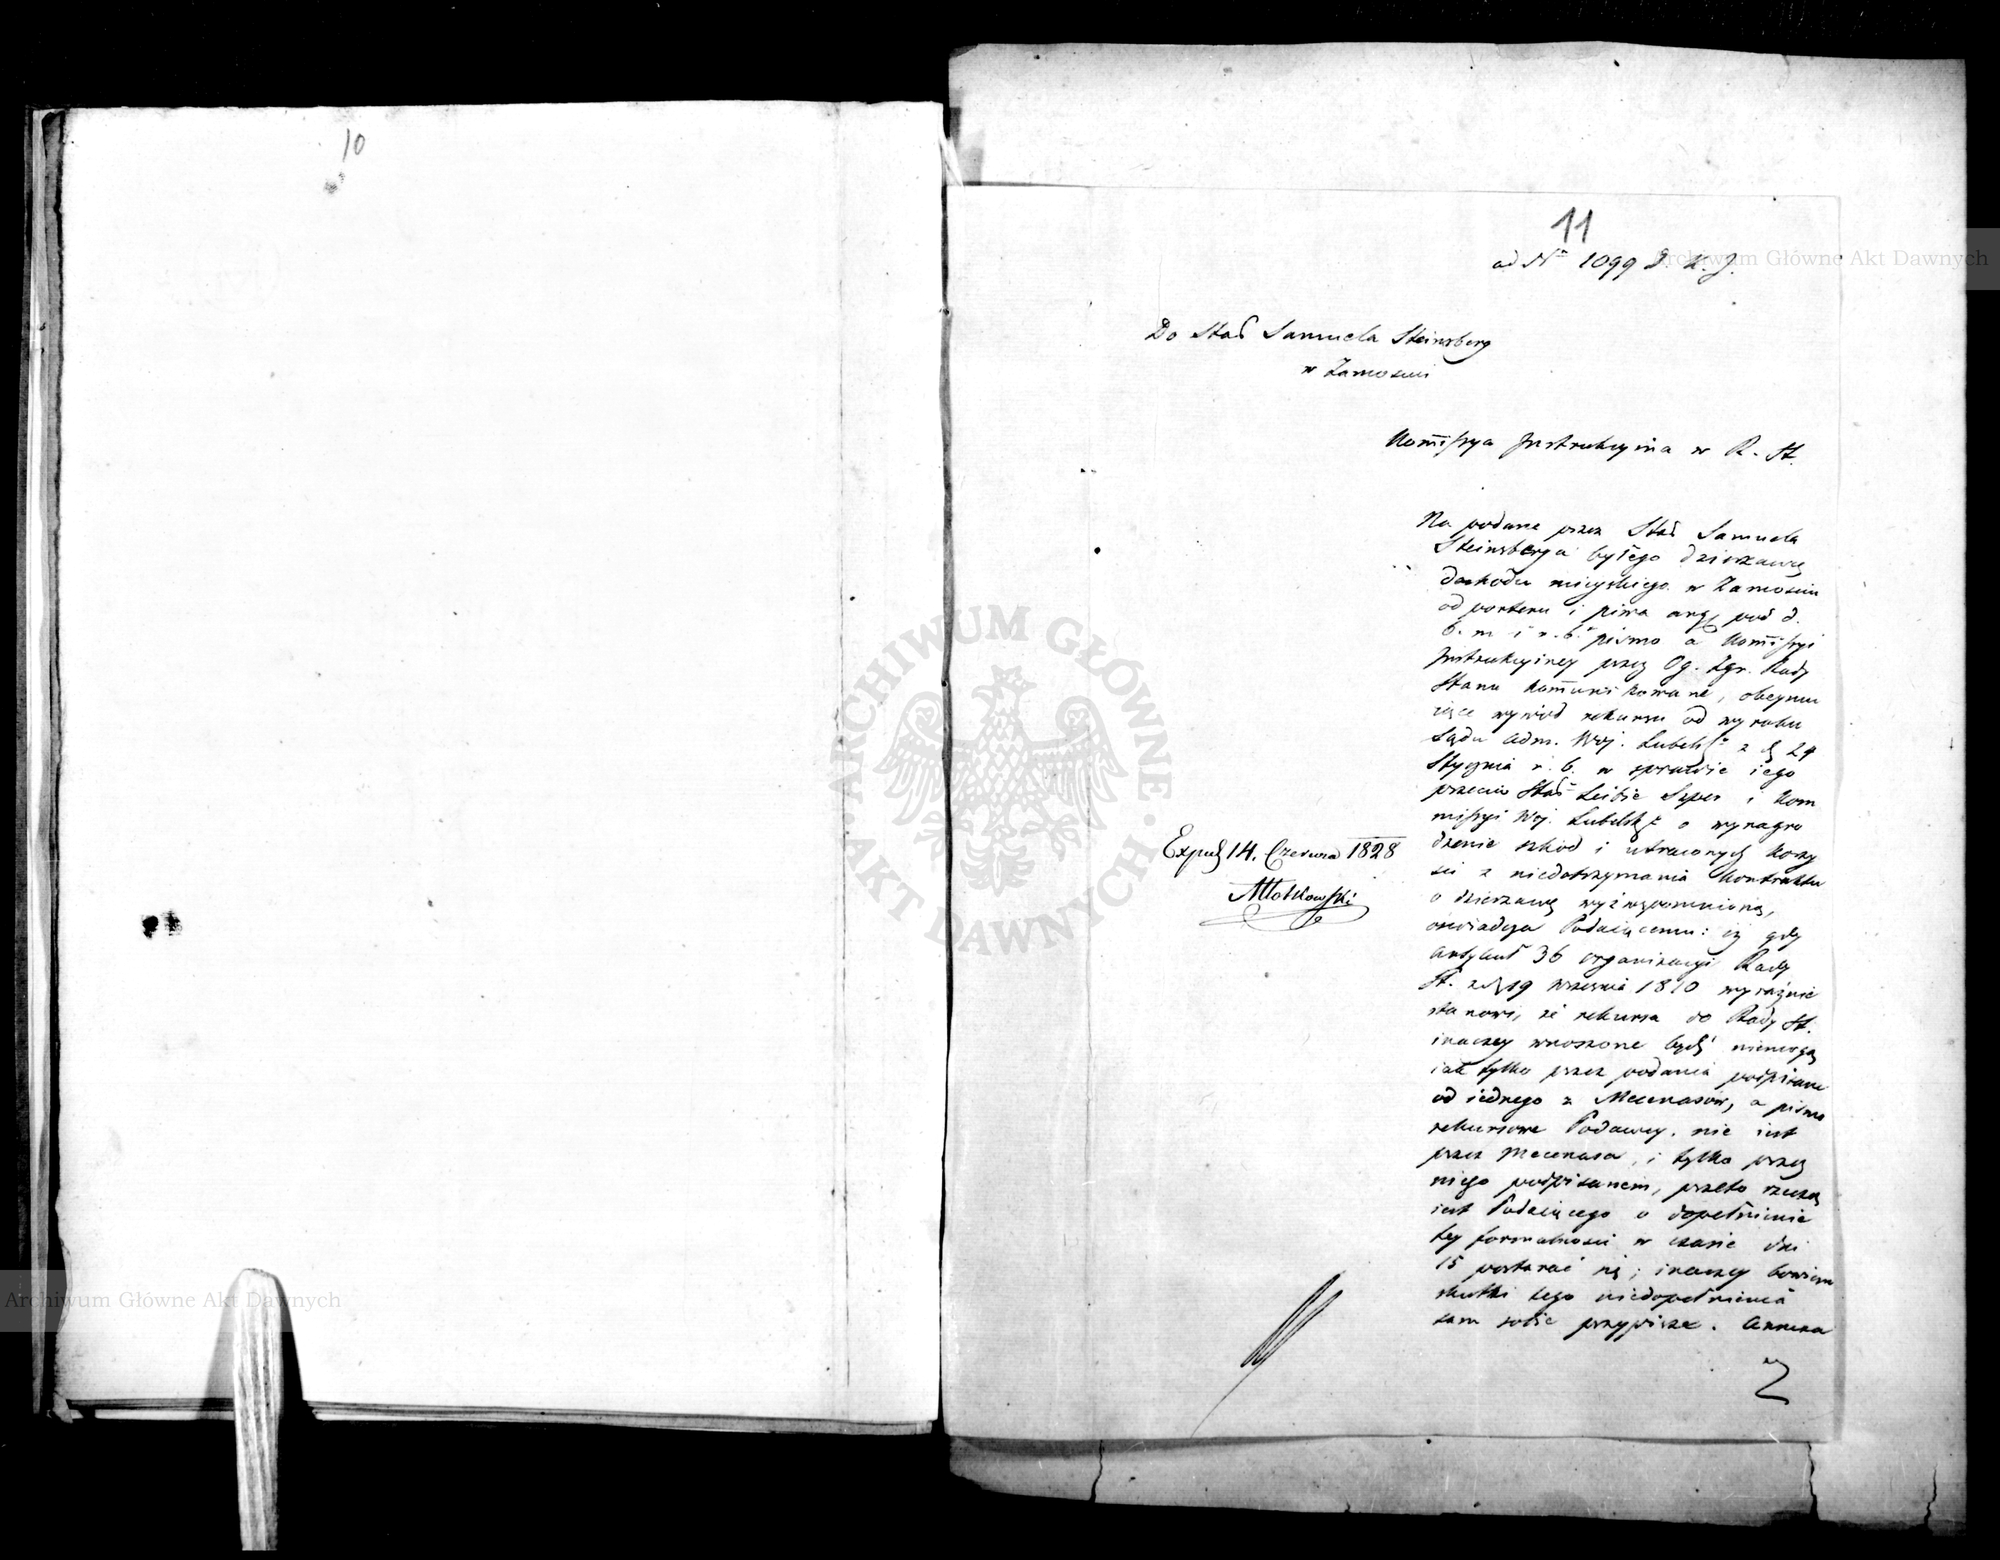 10
11
ad Nº 1099 D. K. J.
Do Star. Samuela Steinsberg
w Zamościu
Kom̄issya Instrukcyina w R. St.
Na podane przez Star. Samuela
Steinsberga byłego dzierżawcę
dochodu mieyskiego w Zamościu
od porteru i piwa ang. pod d.
6. m. i r. b. pismo a Kom̄issyi
Instrukcyiney przez Og. Zgr. Rady
Stanu kom̄unikowane, obeymu
iące wywód rekursu od wyroku
Sądu Adm. Woj. Lubelsk. z d. 24
Stycznia r. b. w sprawie iego
przeciw Star. Leibie Szper i Kom
missyi Woj. Lubelsk. o wynagro
dzenie szkód i utraconych korzy
ści z niedotrzymania kontraktu
o dzierżawę wyżwspomnioną,
oświadcza Podaiącemu: iż gdy
artykuł 36 organizacyi Rady
St. z d. 19 września 1810 wyraźnie
stanowi, że rekursa do Rady St.
inaczey wnoszone bydź niemogą
iak tylko przez podania podpisane
od iednego z Mecenasów, a pismo
rekursowe Podawcy nie iest
przez Mecenasa, i tylko przez
niego podpisanem, przeto rzeczą
iest Podaiącego o dopełnienie
tey formalności w czasie dni
15 postarać się; inaczey bowiem
skutki tego niedopełnienia
sam sobie przypisze. Annexa
Exped. 14. Czerwca 1828
Młotkowski
ARCHIWUM GŁÓWNE
AKT DAWNYCH
Archiwum Główne Akt Dawnych
Archiwum Główne Akt Dawnych